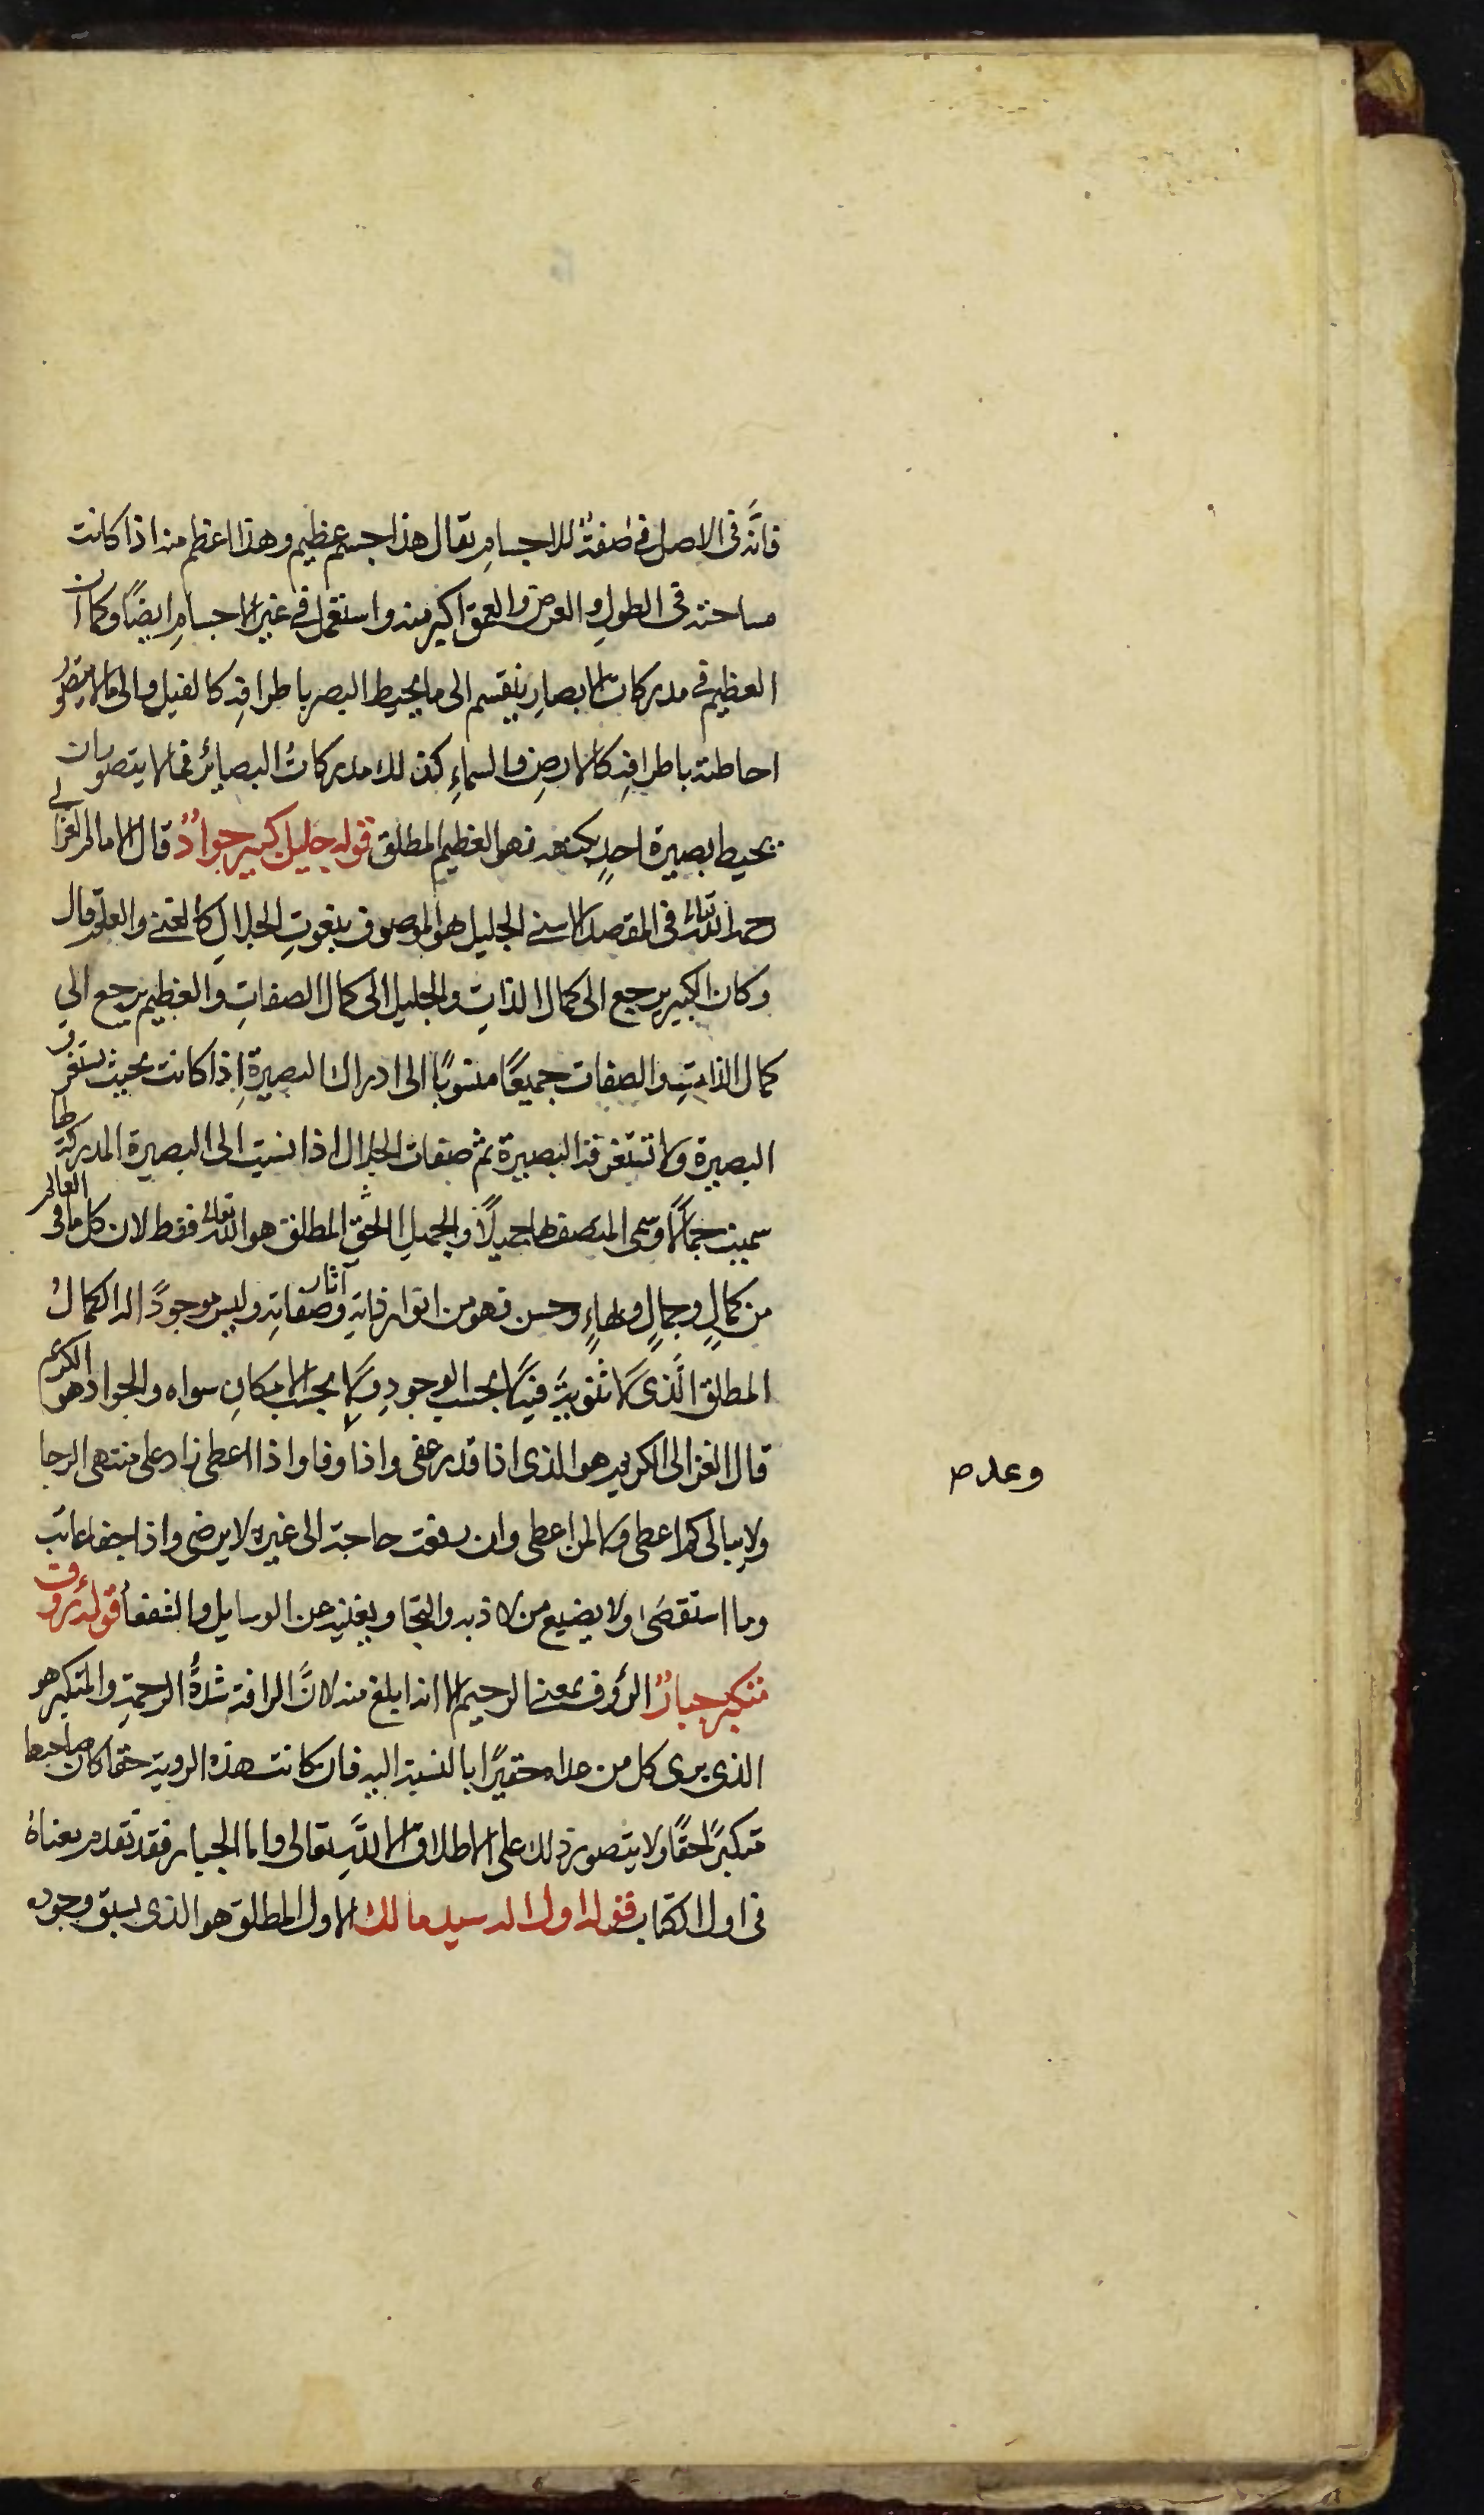 فانَّه فى الاصل فى صفة للاجسامِ يقال هذا جسم عظيم وهذا اعظم منه اذا كانت
مساحته فى الطولِ والعرض والعمق اكبر منه واستعمل فى غير الاجسامِ ايضًا وكما ان
العظيم فى مدركات الابصارِ ينقسم الى ما يحيط البصر باطرافِه كالفيل والى ما لا يتصوّر
احاطته باطرافِه كالارضِ والسماءِ كذلك مدركاتُ البصائر فما لا يتصور ان
يحيط بصيرة احدٍ بكنهه فهو العظيم المطلق قوله جليل كبير جوادٌ قال الامام الغزالى
رحمه الله تعالى فى المقصد الاسنى الجليل هو الموصوف بنعوتِ الجلالِ كالغنى والعلم قال
وكان الكبير يرجع الى كمال الذاتِ والجليل الى كمال الصفاتِ والعظيم يرجع الى
كمال الذاتِ والصفات جميعًا منسوبًا الى ادراك البصيرةِ اذا كانت بحيث يستغرق
البصيرة ولا تستغرقه البصيرة ثم صفات الجلال اذا نسبت الى البصيرة المدركة لها
سميت جمالًا وسمى المتصف بها جميلًا والجميل الحق المطلق هو الله تعالى فقط لان كل ما فى العالم
من كمالٍ وجمالٍ وبهاءٍ وحسن فهو من انوار ذاتِه وآثار صفاتِه وليس موجودًا له الكمالُ
المطلق الَّذى لا مثنوية فيه لا بحسب الوجودِ ولا بحسب الامكانِ سواه والجواد هو الكريم
قال الغزالى الكريم هو الذى اذا قدر عفى واذا وفا واذا اعطى زاد على منتهى الرجا
وعدم
ولا يبالى كم اعطى ولا لمن اعطى وان رفعت حاجة الى غيره لا يرضى واذا جفا عاتب
وما استقصَى ولا يضيع من لاذ به والتجا ويغنيه عن الوسايل والشفعا قوله رؤف
متكبر جبارٌ الرؤف بمعنى الرحيم الا انه ابلغ منه لانَّ الرافة شدَّةُ الرحمةِ والمتكبر هو
الذى يرى كل من عداه حقيرًا بالنسبة اليه فان كانت هذه الروية حقا كان صاحبها
متكبرًا حقًا ولا يتصور ذلك على الاطلاق الا للَّهِ تعالى واما الجبار فقد تقدم معناهُ
فى اول الكتاب قوله اول اله سيد مالك الاول المطلق هو الذى يسبق وجوده